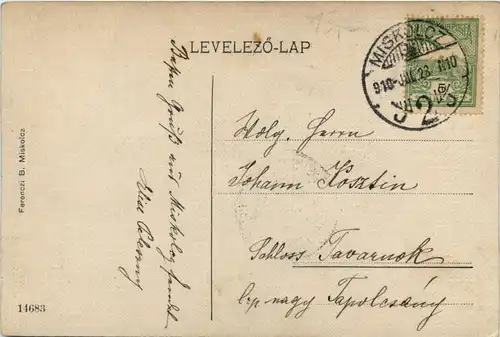 LEVELEZŐ-LAP
MISKOLCZ
910 JUL 28
2
Ferenczi B. Miskolcz
14683
Besten Gruß aus Miskolcz sendet
Wolg. Herrn
Johann Kosztin
Schloss Tavarnok
l/p nagy Tapolcsány